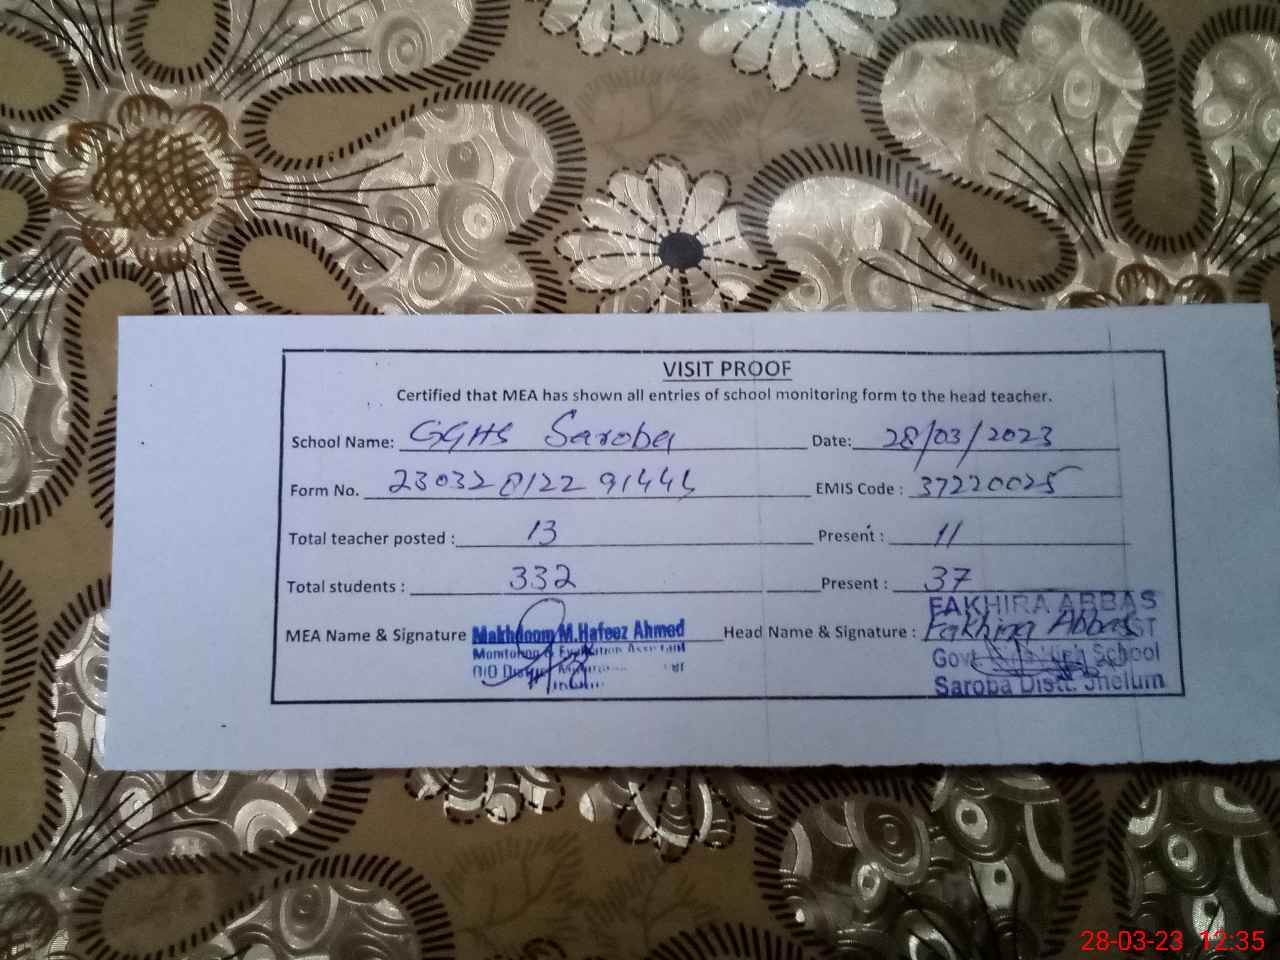 VISIT PROOF
Certified that MEA has shown all entries of school monitoring form to the head teacher.
School Name: GGHS Saroba Date: 28/03/2023
Form No. 230328122 91444 EMIS Code : 37220025
Total teacher posted : 13 Present : 11
Total students : 332 Present : 37
MEA Name & Signature Makhdoom M.Hafeez Ahmed Head Name & Signature : Fakhira Abbas
Monitoring & Evaluation Assistant
FAKHIRA ABBAS
Govt. Girls High School
Saroba Distt. Jhelum
28-03-23 12:35